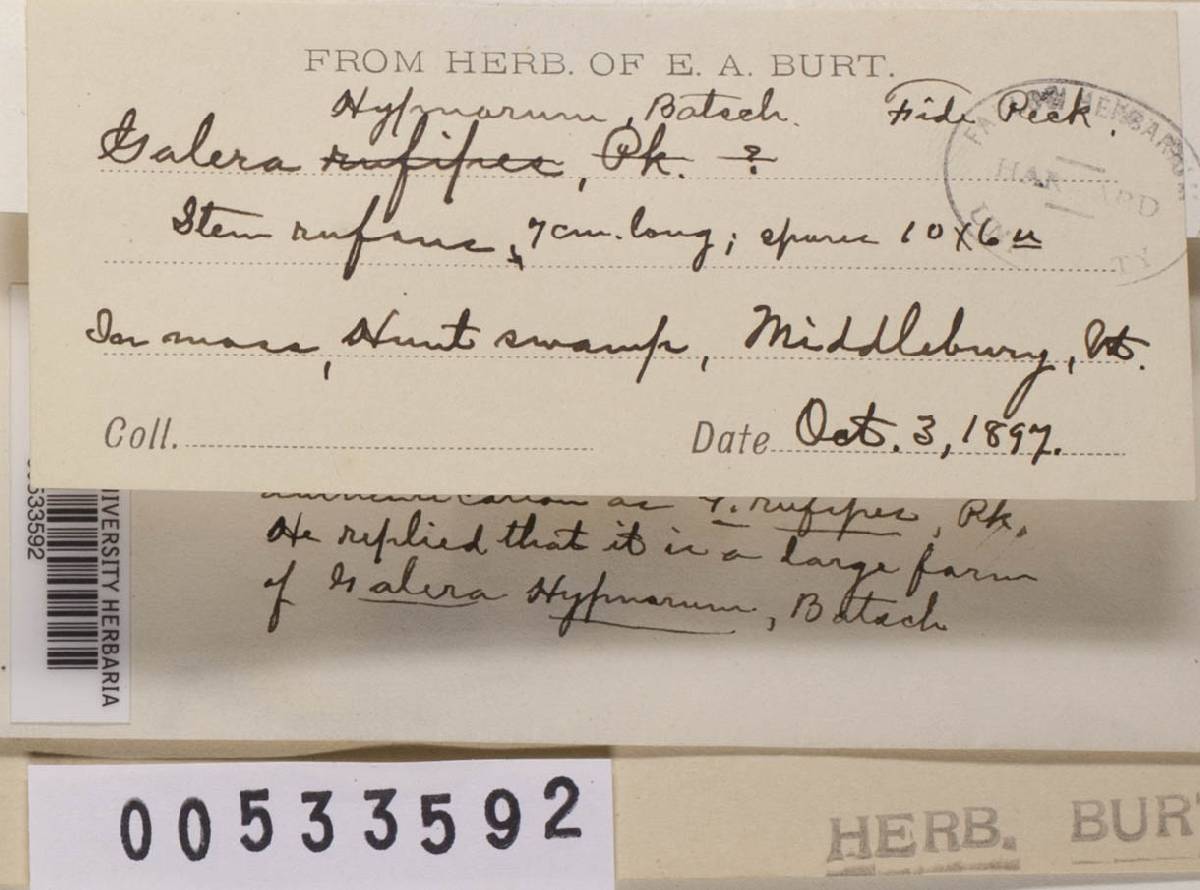 FROM HERB. OF E. A. BURT.
Hypnorum, Batsch. Fide Peck.
Galera rufipes, Pk. ?
Stem rufous, 7 cm. long; spores 10 x 6 u
In moss, Hunt swamp, Middlebury, Vt.
Coll. Date Oct. 3, 1897.
FARLOW HERBARIUM
HARVARD
as G. rufipes, Pk.
He replied that it is a large form
of Galera Hypnorum, Batsch
UNIVERSITY HERBARIA
00533592
00533592
HERB. BURT